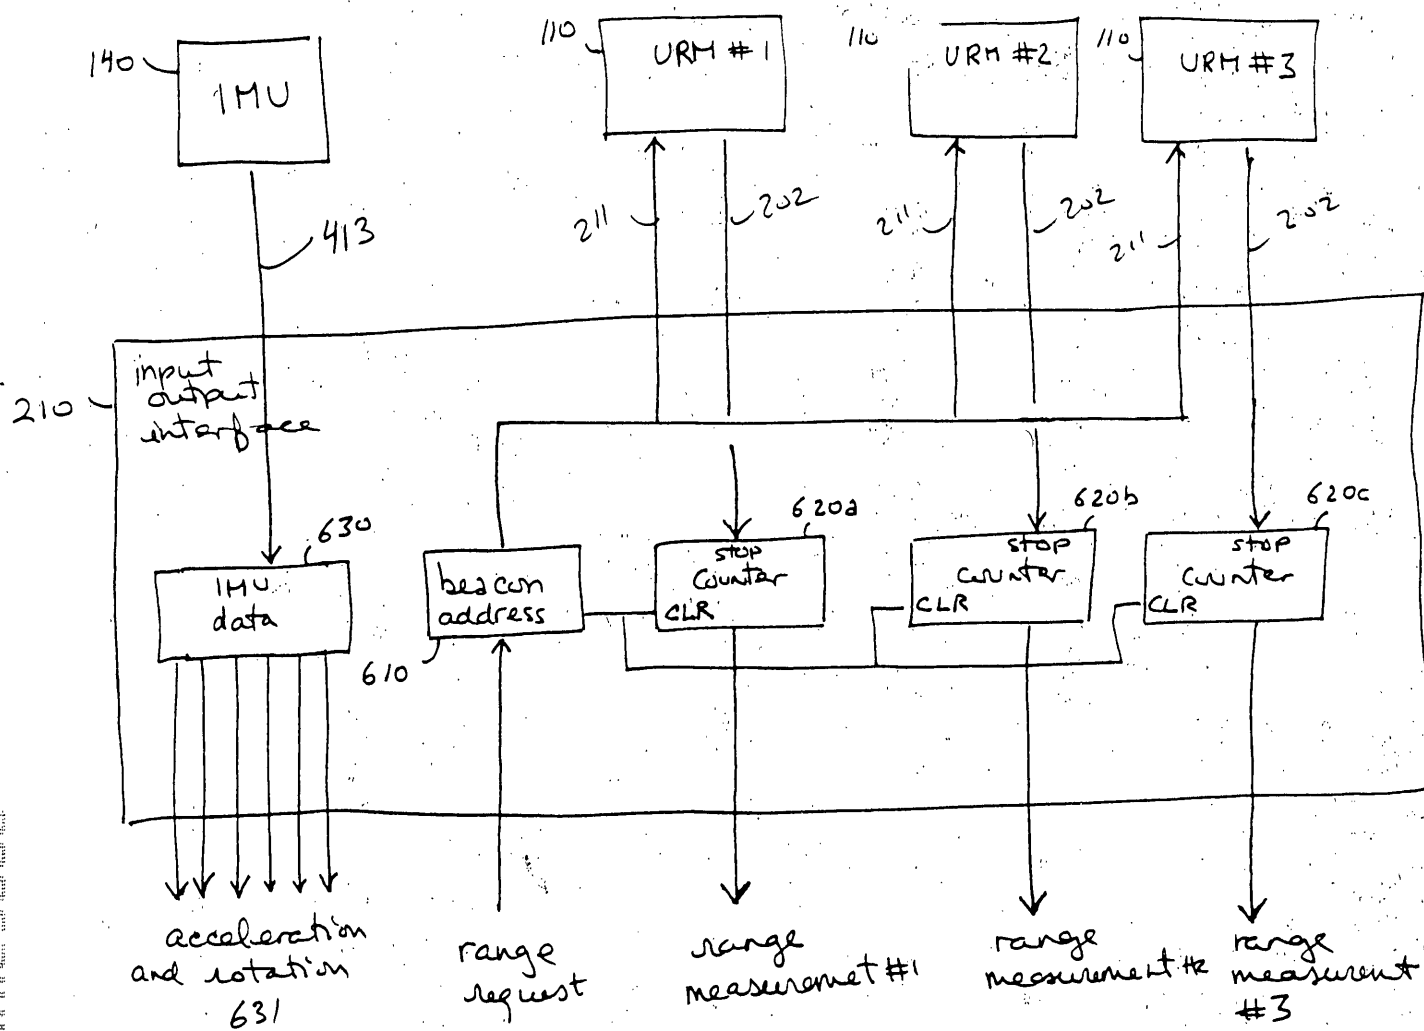 140
IMU
110
URM #1
110
URM #2
110
URM #3
413
211
202
211
202
211
202
210
input
output
interface
630
IMU
data
beacon
address
610
620a
stop
counter
CLR
620b
stop
counter
CLR
620c
stop
counter
CLR
acceleration
and rotation
631
range
request
range
measuremet #1
range
measurement #2
range
measurement
#3